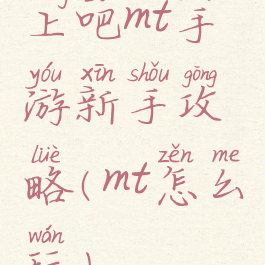 上吧mt手
yóu xīn shǒu gōng
游新手攻
lüè zěn me
略(mt怎么
wán
玩)